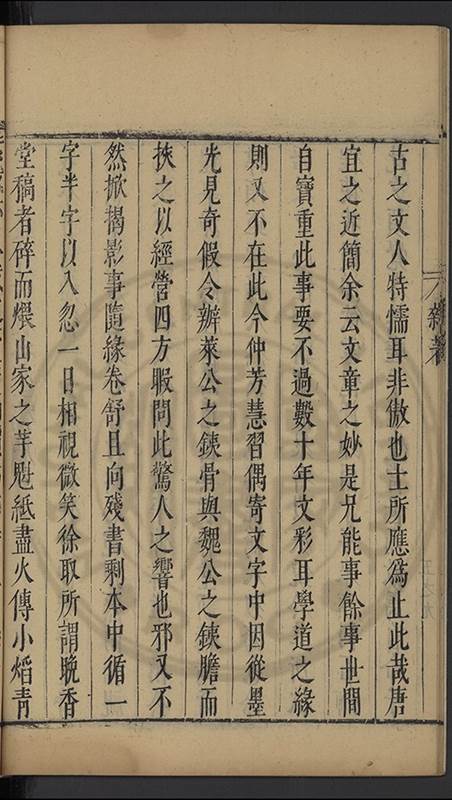 古之文人特懦耳非傲也士所應為止此哉唐
宜之近簡余云文章之妙是兄能事餘事世間
自寶重此事要不過數十年文彩耳學道之緣
則又不在此今仲芳慧習偶寄文字中因從墨
光見奇假令辦萊公之鋏骨與魏公之鋏膽而
挾之以經營四方暇問此驚人之響也邪又不
然掀揭影事隨緣卷舒且向殘書剩本中循一
字半字以入忽一日相視微笑徐取所謂晚香
堂稿者碎而煨山家之芋魁紙盡火傳小熖青